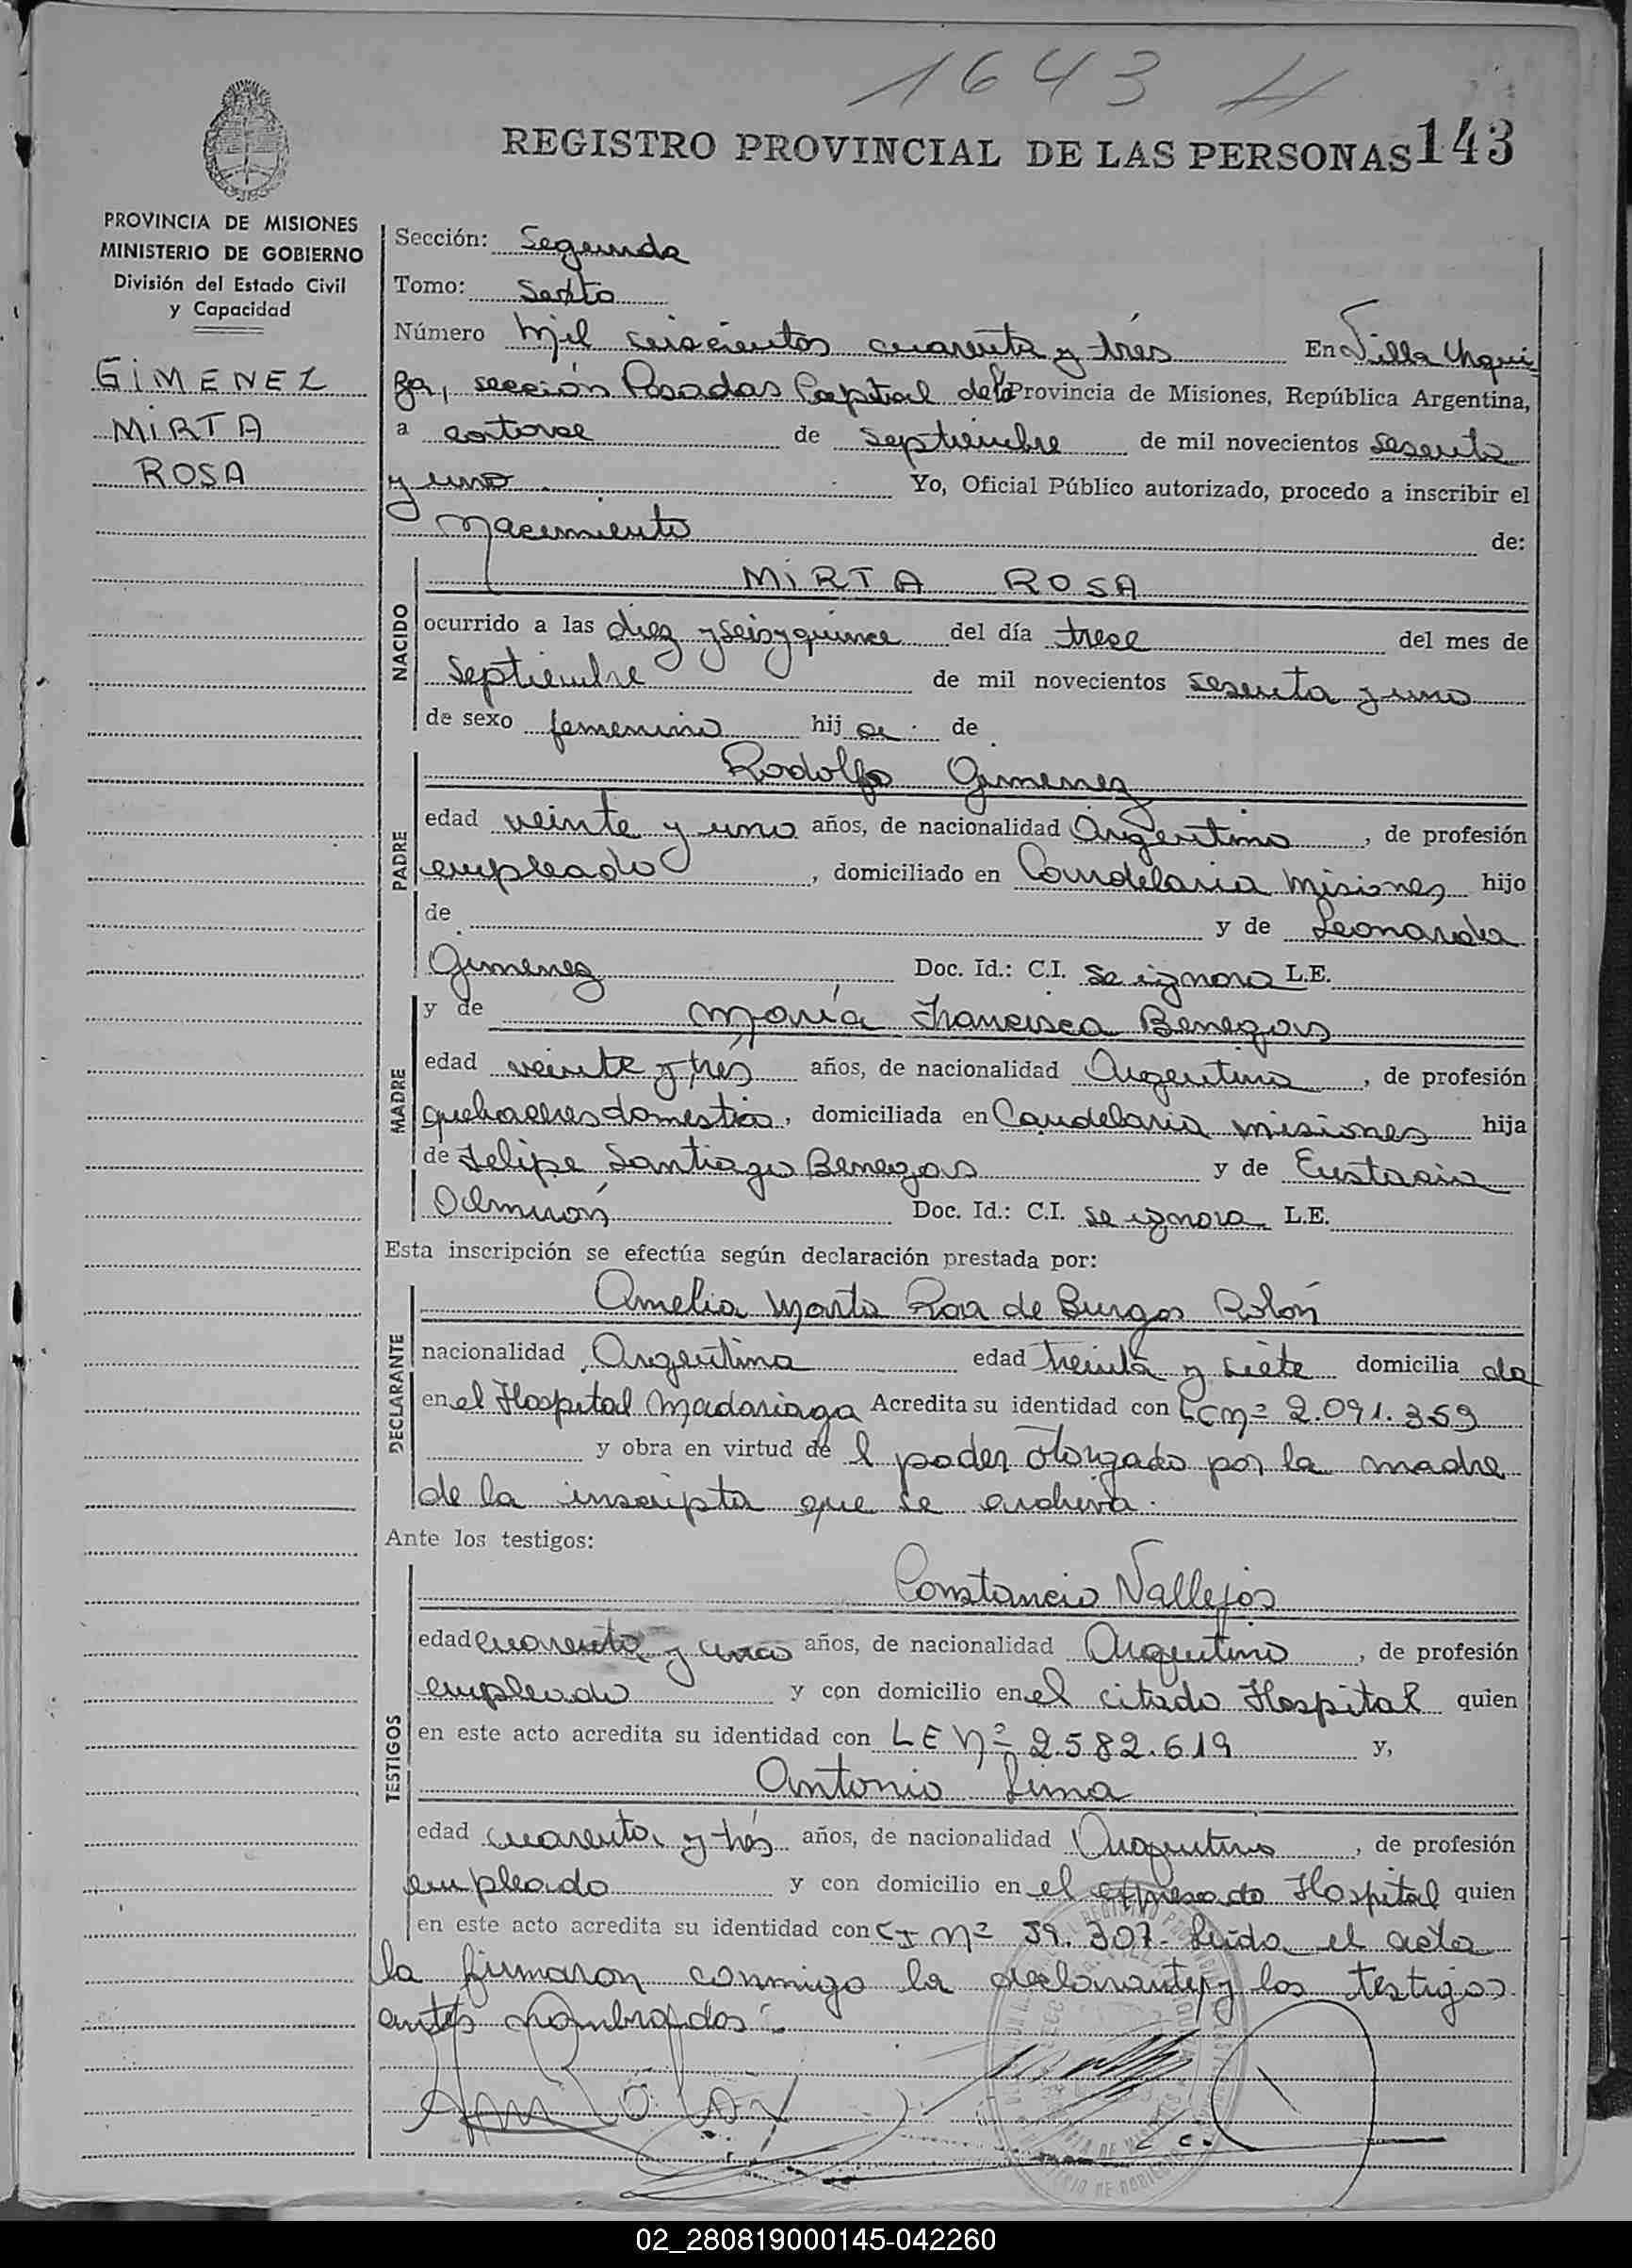 1643
REGISTRO PROVINCIAL DE LAS PERSONAS 143
PROVINCIA DE MISIONES
MINISTERIO DE GOBIERNO
División del Estado Civil
y Capacidad
GIMENEZ
MIRTA
ROSA
Sección: Segunda
Tomo: Sexto
Número Mil seiscientos cuarenta y trés En Villa Urqui
za, sección Posadas Capital de la Provincia de Misiones, República Argentina,
a catorce de septiembre de mil novecientos sesenta
y uno Yo, Oficial Público autorizado, procedo a inscribir el
Nacimiento de:
NACIDO
MIRTA ROSA
ocurrido a las diez y seis y quince del día trece del mes de
Septiembre de mil novecientos sesenta y uno
de sexo femenino hij a de
PADRE
Rodolfo Gimenez
edad veinte y uno años, de nacionalidad Argentino, de profesión
empleado, domiciliado en Candelaria Misiones hijo
de y de Leonarda
Gimenez Doc. Id.: C.I. se ignora L.E.
MADRE
y de María Francisca Benegas
edad veinte y trés años, de nacionalidad Argentina, de profesión
quehaceres domestico, domiciliada en Candelaria misiones hija
de Felipe Santiago Benegas y de Eustacia
Odmirón Doc. Id.: C.I. se ignora L.E.
Esta inscripción se efectúa según declaración prestada por:
DECLARANTE
Amelia Marta Roa de Burgos Rolón
nacionalidad Argentina edad treinta y siete domicilia da
en el Hospital Madariaga Acredita su identidad con LC Nº 2.091.359
y obra en virtud de l poder otorgado por la madre
de la inscripta que se archiva.
Ante los testigos:
TESTIGOS
Constancio Vallejos
edad cuarenta y uno años, de nacionalidad Argentino, de profesión
empleado y con domicilio en el citado Hospital quien
en este acto acredita su identidad con LE Nº 2.582.619 y,
Antonio Lima
edad cuarenta y trés años, de nacionalidad Argentino, de profesión
empleado y con domicilio en el expresado Hospital quien
en este acto acredita su identidad con CI Nº 59.307- Leída el acta
la firmaron conmigo la declarante y los testigos
antes nombrados.-
02_280819000145-042260